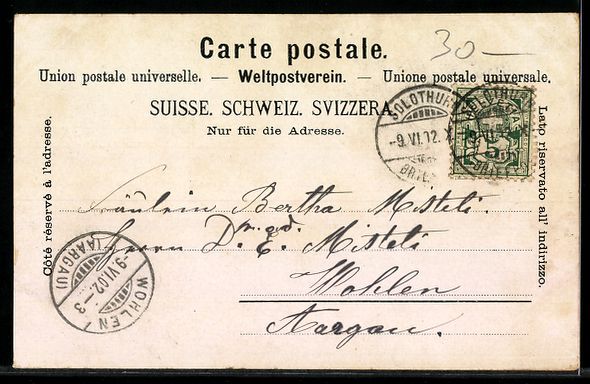 30.—
Carte postale.
Union postale universelle. — Weltpostverein. — Unione postale universale.
SUISSE. SCHWEIZ. SVIZZERA.
Nur für die Adresse.
Côté réservé à l'adresse.
Lato riservato all' indirizzo.
SOLOTHURN
-9.VI.02.X
BRIEF
5
Fräulein Bertha Misteli.
p. ad.
Herrn Dr. E. Misteli
Wohlen
Aargau.
WOHLEN
(AARGAU)
-9.VI.02.-3